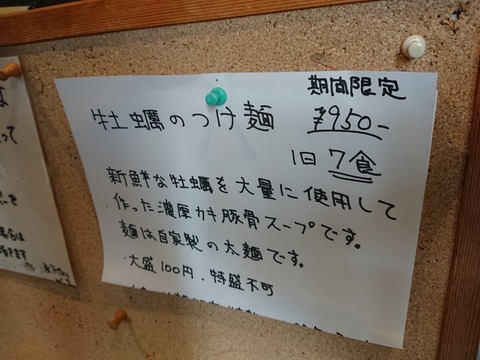 期間限定
牡蠣のつけ麺 ¥950-
1日 7食
新鮮な牡蠣を大量に使用して
作った濃厚カキ豚骨スープです。
麺は自家製の太麺です。
・大盛100円・特盛不可